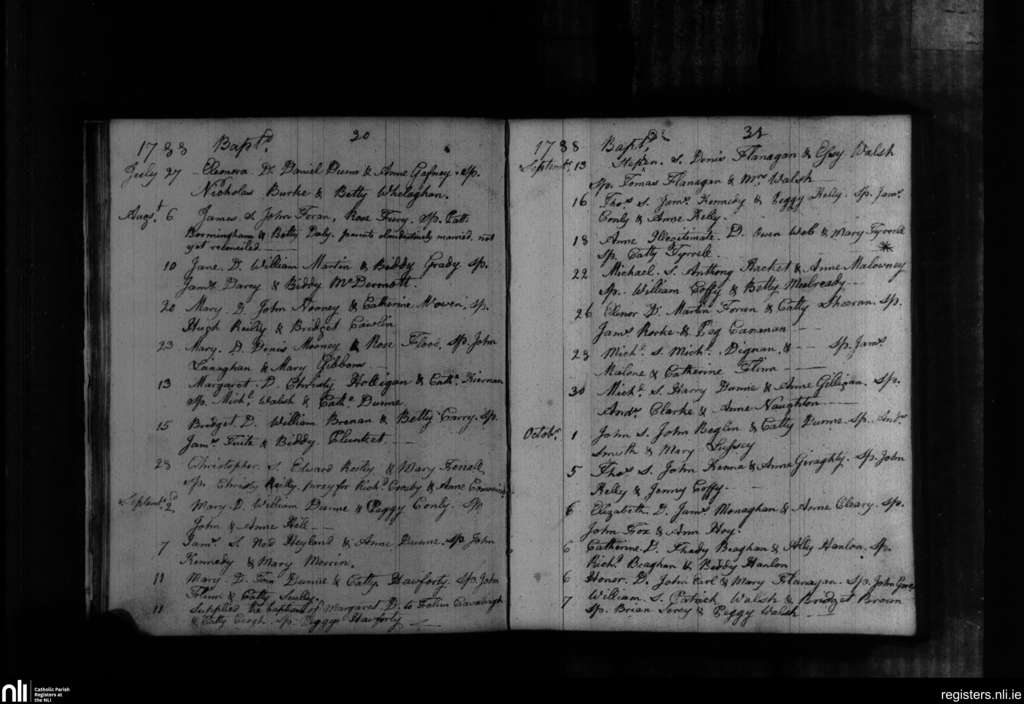 1788 Baptd. 30
July 27 Eleonora D. Daniel Dunn & Anne Gafney. sp.
Nicholas Burke & Betty Wheleghan.
Augst. 6 James S. John Foran, Rose sp. Cath.
Bermingham & Betty Daly. parents clandestinely married, not
yet reconciled
10 Jane. D. William Martin & Biddy Grady sp.
Jams. Darcy & Biddy McDermott.
20 Mary. D. John Nooney & Catherine sp.
Hugh Reidy & Bridget
23 Mary. D. Denis Mooney & Rose sp. John
& Mary Gibbons
13 Margaret. D. Christy & Cathe. Kiernan
sp. Michl. Walsh & Cathe. Dunne
15 Bridget. D. William Brenan & Betty Carry. sp.
Jams. Tuite & Biddy Plunket
28 Christopher. S. Edward Reilly & Mary Farrell
sp. Christy Reilly. proxy for Richd. & Anne
Septembr. 2d Mary. D. William Dunne & Peggy Conly. sp.
John & Anne
7 Jams. S. Ned Heyland & Anne Dunne. sp. John
Kennedy & Mary
11 Mary. D. Dunne & Catty Haverty. sp. John
Flinn & Catty
11 Supplied the baptism of Margaret D. to Cavanagh
& Catty sp. Peggy Haverty
1788 Baptd. 31
Septembr. 13 Stephen. S. Denis Flanagan & Walsh
sp. Tomas Flanagan & Mrs. Walsh
16 Thos. S. Jams. Kennedy & Peggy Kelly. sp. Jams.
Conly & Anne Kelly.
18 Anne Illegitimate. D. Owen Web & Mary Tyrrell
sp. Catty Tyrrell.
22 Michael. S. Anthony Hacket & Anne Malowney
sp. William Coffy & Betty
26 Elenor D. Martin Forran & Catty Sheeran. sp.
Jams. Rorke & Peg
28 Michl. S. Michl. Dignan. & sp. Jams.
Malone & Catherine Flinn
30 Michl. S. Harry Dunne & Anne Gilligan. sp.
Andw. Clarke & Anne Naughton
Octobr. 1 John S. John Beglin & Catty Dunne. sp. Andw.
Smith & Mary
5 Thos. S. John Kenna & Anne Geraghty. sp. John
Kelly & Jenny Coffy
6 Elizabeth. D. Jams. Monaghan & Anne Cleary. sp.
John Fox & Ann Hoy.
6 Catherine. D. Thady Beaghan & Hanlon. sp.
Richd. Beaghan & Biddy Hanlon
6 Honor. D. John Carl & Mary Flanagan. sp. John
7 William S. Patrick Walsh & Bridget Brown
sp. Brian & Peggy Walsh
nli
Catholic Parish
Registers at
the NLI
registers.nli.ie